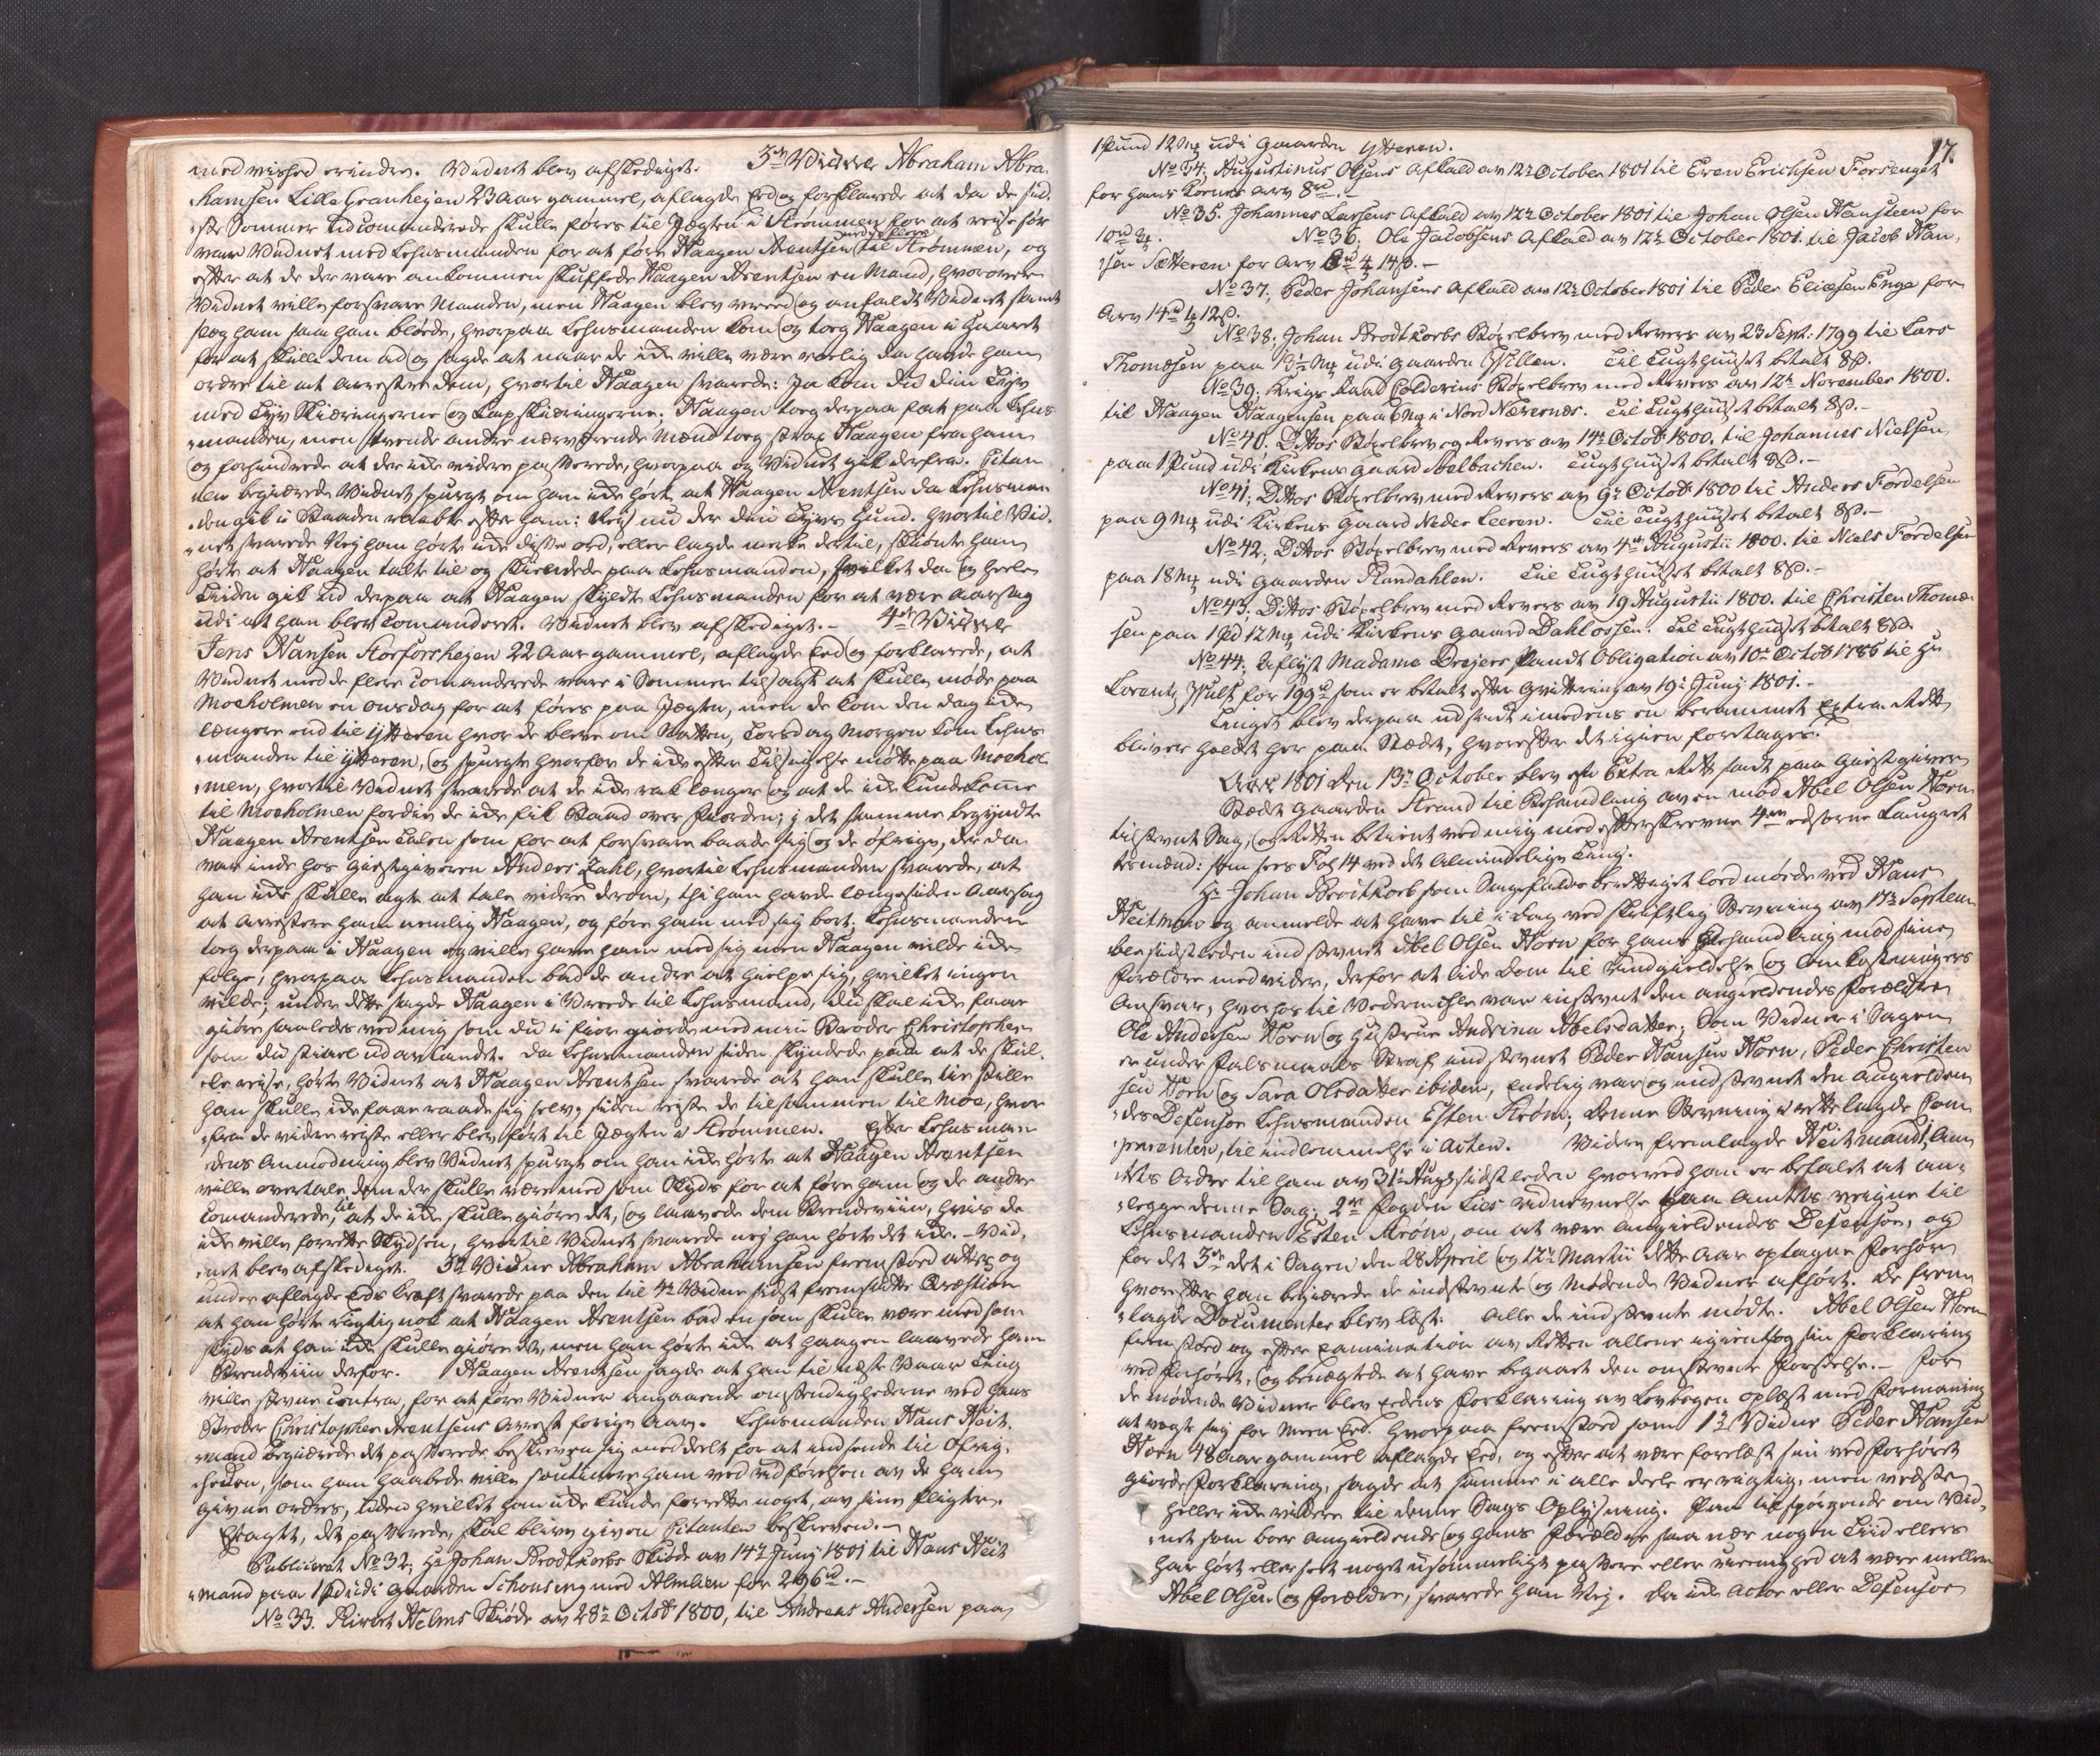 med vished erindre. Vidnet blev afskediget. 3de Vidne Abraham Abra-
hamsen Lille Granheien 23 Aar gammel, aflagde Eed og forklarede at da de sid-
ste Sommer Tid comanderede skulle føres til Jægten i Strømmen for at rejse sør
var Vidnet med Lehnsmanden for at føre Haagen Arentsen til Strømmen, og
efter at de der vare ankommen skuffede Haagen Arentsen en Mand, hvorover
Vidnet ville forsvare Manden, men Haagen blev vreed og anfaldt Vidnet samt
slog ham saa han blødde, hvorpaa Lehnsmanden kom og tog Haagen i Haaret
for at skille dem ad og sagde at naar de ikke ville være roelig da havde han
ordre til at arrestere dem, hvortil Haagen svarede: Ja kom du din Tyv
med Tyv Skiæringerne og Lapskiæringerne. Haagen tog derpaa fat paa Lehns-
manden, men tvende andre nærværende Mænd tog strax Haagen fra ham
og forhindrede at der ikke videre passerede, hvorpaa og Vidnet gik derfra. Citan-
ten begiærede Vidnet spurgt om han ikke hørte at Haagen Arentsen da Lehnsman-
den gik i Baaden raabte efter ham: Rejs nu der din Tyvs Hund. Hvortil Vid-
net svarede Nej han hørte ikke disse ord, eller lagde merke dertil, skiønt han
hørte at Haagen talte til og skiendede paa Lehnsmanden, hvilket da og heele
Tiden gik ud derpaa at Haagen skyldte Lehnsmanden for at være aarsag
udi at han blev Comanderet. Vidnet blev afskediget.- 4de Vidne
Jens Hansen Storforshejen 22 Aar gammel, aflagde Eed og forklarede, at
Vidnet med de flere comanderede vare i Sommer tilsagt at skulle møde paa
Moeholmen en onsdag for at føres paa Jægten, men de kom den dag ikke
længere end til Ytteren hvor de bleve om Natten, Torsdag Morgen kom Lehns-
manden til Ytteren, og spurgte hvorfor de ikke efter Tilsigelse mødte paa Moehol-
men, hvortil Vidnet svarede at de ikke rak længer og at de ikke kunde komme
til Moeholmen fordi de ikke fik Baad over Fiorden; i det samme begyndte
Haagen Arentsen Talen som for at forsvare baade sig og de øfrige, der da
var inde hos Giestgiveren Anders Zahl, hvortil Lehnsmanden svarede, at
han ikke skulle agte at tale videre derom, thi han havde længe siden Aarsag
at arrestere ham nemlig Haagen, og føre ham med sig bort, Lehnsmanden
tog derpaa i Haagen og ville have ham med sig men Haagen vilde ikke
følge, hvorpaa Lehnsmanden bad de andre at hielpe sig, hvilket ingen
vilde; under dette sagde Haagen i Vrede til Lehnsmand, du skal ikke faae
giøre saaledes ved mig som du i fior giorde med min Broder Christopher
som du stiael ud av landet. Da Lehnsmanden siden skyndede paa at de skul-
le rejse, hørte Vidnet at Haagen Arentsen svarede at han skulle tie stille
han skulle ikke faae raade sig selv, siden rejste de tilsammen til Moe, hvor-
fra de videre rejste eller blev ført til Jægten i Strømmen. Efter Lehnsman-
dens Anmodning blev Vidnet spurgt om han ikke hørte at Haagen Arentsen
ville overtale dem der skulle være med som Skyds for at føre ham og de andre
comanderede, til at de ikke skulle giøre det, og laavede dem Brendeviin, hvis de
ikke ville forrette Skydsen, hvortil Vidnet svarede nej han hørte det ikke.- Vid-
net blev afskediget. 3de Vidne Abraham Abrahamsen fremstoed atter og
under aflagde Eeds kraft svarede paa den til 4de Vidne sidst fremsatte Qvæstion
at han hørte rigtig nok at Haagen Arentsen bad en som skulle være med som
skyds at han ikke skulle giøre det, men han hørte ikke at Haagen laavede ham
Brendeviin derfor. Haagen Arentsen sagde at han til næste Vaar Ting
ville stevne contra, for at føre Vidner angaaende omstendighederne ved hans
Broder Christopher Arentsens arrest forige Aar. Lehnsmanden Hans Heit-
mand begiærede det passerede beskreven sig meddeelt for at indsende til Øfrig-
heden, som han haabede ville soutinere ham ved udførelsen av de ham
givne ordres, uden hvilket han ikke kunde forrette noget, av sine Pligter.
Eragtet, det passerede, skal blive given Citanten beskreven.-
Publiceret No 32, Hr Johan Brodtkorbs Skiøde av 14de Junij 1801 til Hans Heit-
mand paa 1 Pd udi Gaarden Schonseng med Almlien for 296 rd.-
No 33. Sivert Helms Skiøde av 28de Octob 1800, til Andreas Andersen paa
17.
1 Pund 12 Mk udi Gaarden Ytteren.
No 34, Augustinus Olsens Afkald av 12te October 1801 til Even Erichsen Forsenget
for hans Kones arv 8 rd.-
No 35. Johannes Larsens Afkald av 12te October 1801 til Johan Olsen Hansteen for
10 rd. No 36, Ole Jacobsens Afkald av 12te October 1801. til Jacob Han-
sen Sætteren for Arv 14 s.-
No 37, Peder Johansens Afkald av 12te October 1801 til Peder Eliæsen Enge for
Arv 14 rd 12 s.
No 38, Johan Brodtkorbs Bøxelbrev med Revers av 23 Sept. 1799 til Lars
Thomæsen paa 13½ Mk udi Gaarden Til Tugthuuset betalt 8 s.
No 39, Krigs Raad Coldevins Bøxelbrev med Revers av 12te November 1800.
til Haagen Haagensen paa 6 Mk i Nord Næverneæs. Til Tugthuuset betalt 8 s.-
No 40. Dittos Bøxelbrev og Revers av 14de Octob 1800. til Johannes Nielsen
paa 1 Pund udi Kirkens Gaard Selbachen. Tugthuuset betalt 8 s.-
No 41, Dittos Bøxelbrev med Revers av 9de Octob 1800 til Anders Fordelsen
paa 9 Mk udi Kirkens Gaard Neder Leeren. Til Tugthuuset betalt 8 s.-
No 42, Dittos Bøxelbrev med Revers av 4de Augustii 1800. til Niels Fordelsen
paa 18 Mk udi Gaarden Plurdahlen. Til Tugthuuset betalt 8 s.-
No 43, Dittos Bøxelbrev med Revers av 19 Augustii 1800. til Christen Thomæ-
sen paa 1 Pd 12 Mk udi Kirkens Gaard Dahlossen. Til Tugthuuset betalt 8 s.
No 44, Aflyst Madame Drejers Pandt Obligation av 10de Octob 1786 til Hr
Lorentz for 199 rd som er betalt efter Qvittering av 19de Junij 1801.-
Tinget blev derpaa udsadt imedens en berammet Extra Rett
bliver holdt her paa Stædet, hvorefter det igien foretages.
Aar 1801 den 13de October blev een Extra Rett sadt paa Giestgiver
Stædet Gaarden Strand til Behandling av en mod Abel Olsen Horn
tilstevnt Sag, og Retten betient ved mig med efterskrevne 4re edsorne Laugret-
tesmænd: som sees Fol 14 ved det Almindelige Ting.
Hr Johan Brodtkorb som Sagefalds berettiget loed møde ved Hans
Heitman og anmelde at have til i Dag ved skriftlig Stevning av 17de Septem-
ber sidstleden indstevnt Abel Olsen Horn for hans Behandling mod sine
Forældre med videre, derfor at lide Dom til Undgieldelse og Omkostningers
Ansvar, hvorhos til Vedermæhle var instevnt den angieldendes Forældre
Ole Andersen Horn og Hustrue Andrina Abelsdatter; Som Vidner i Sagen
er under Falsmaals Straf indstevnt Peder Hansen Horn, Peder Christen-
sen Horn og Sara Olsdatter ibidem, Endelig var og indstevnt den Angielden-
des Defensor Lehnsmanden Esten Strøm; Denne Stevning i rette lagde Com-
parenten, til indlemmelse i Acten. Videre fremlagde Heitmand 1, Am-
tets Ordre til ham av 31te Aug sidstleden hvorved ham er befalet at an-
legge denne Sag; 2de Fogden Lies udnevnelse paa Amtets veigne til
Lehnsmanden Esten Strøm, om at være Angieldendes Defensor, og
for det 3die det i Sagen den 28 April og 12te Martii dette Aar optagne Forhør
hvorefter han begiærede de indstevnte og mødende Vidner afhørt. De frem-
lagde Documenter blev læst. Alle de indstevnte mødte. Abel Olsen Horn
fremstoed og efter examination av Retten allene igientog sin Forklaring
ved Forhøret, og benægtede at have begaaet den omstevnte Forseelse.- For
de mødende Vidner blev Eedens Forklaring av Lovbogen oplæst med Formaning
at vogte sig for Meen Eed. Hvorpaa fremstoed som 1te Vidne Peder Hansen
Horn 48 Aar gammel aflagde Eed, og efter at være forelæst sin ved Forhøret
giorde Forklaring, sagde at samme i alle deele er rigtig, men vedste
heller ikke videre til denne Sags Oplysning. Paa tilspørgende om Vid-
net som boer Angieldende og hans Forældre saa nær nogen Tiid ellers
har hørt eller seet noget usømmeligt passere eller uenighed at være mellem
Abel Olsen og Forældre, svarede han Nej. Da ikke Actor eller Defensor